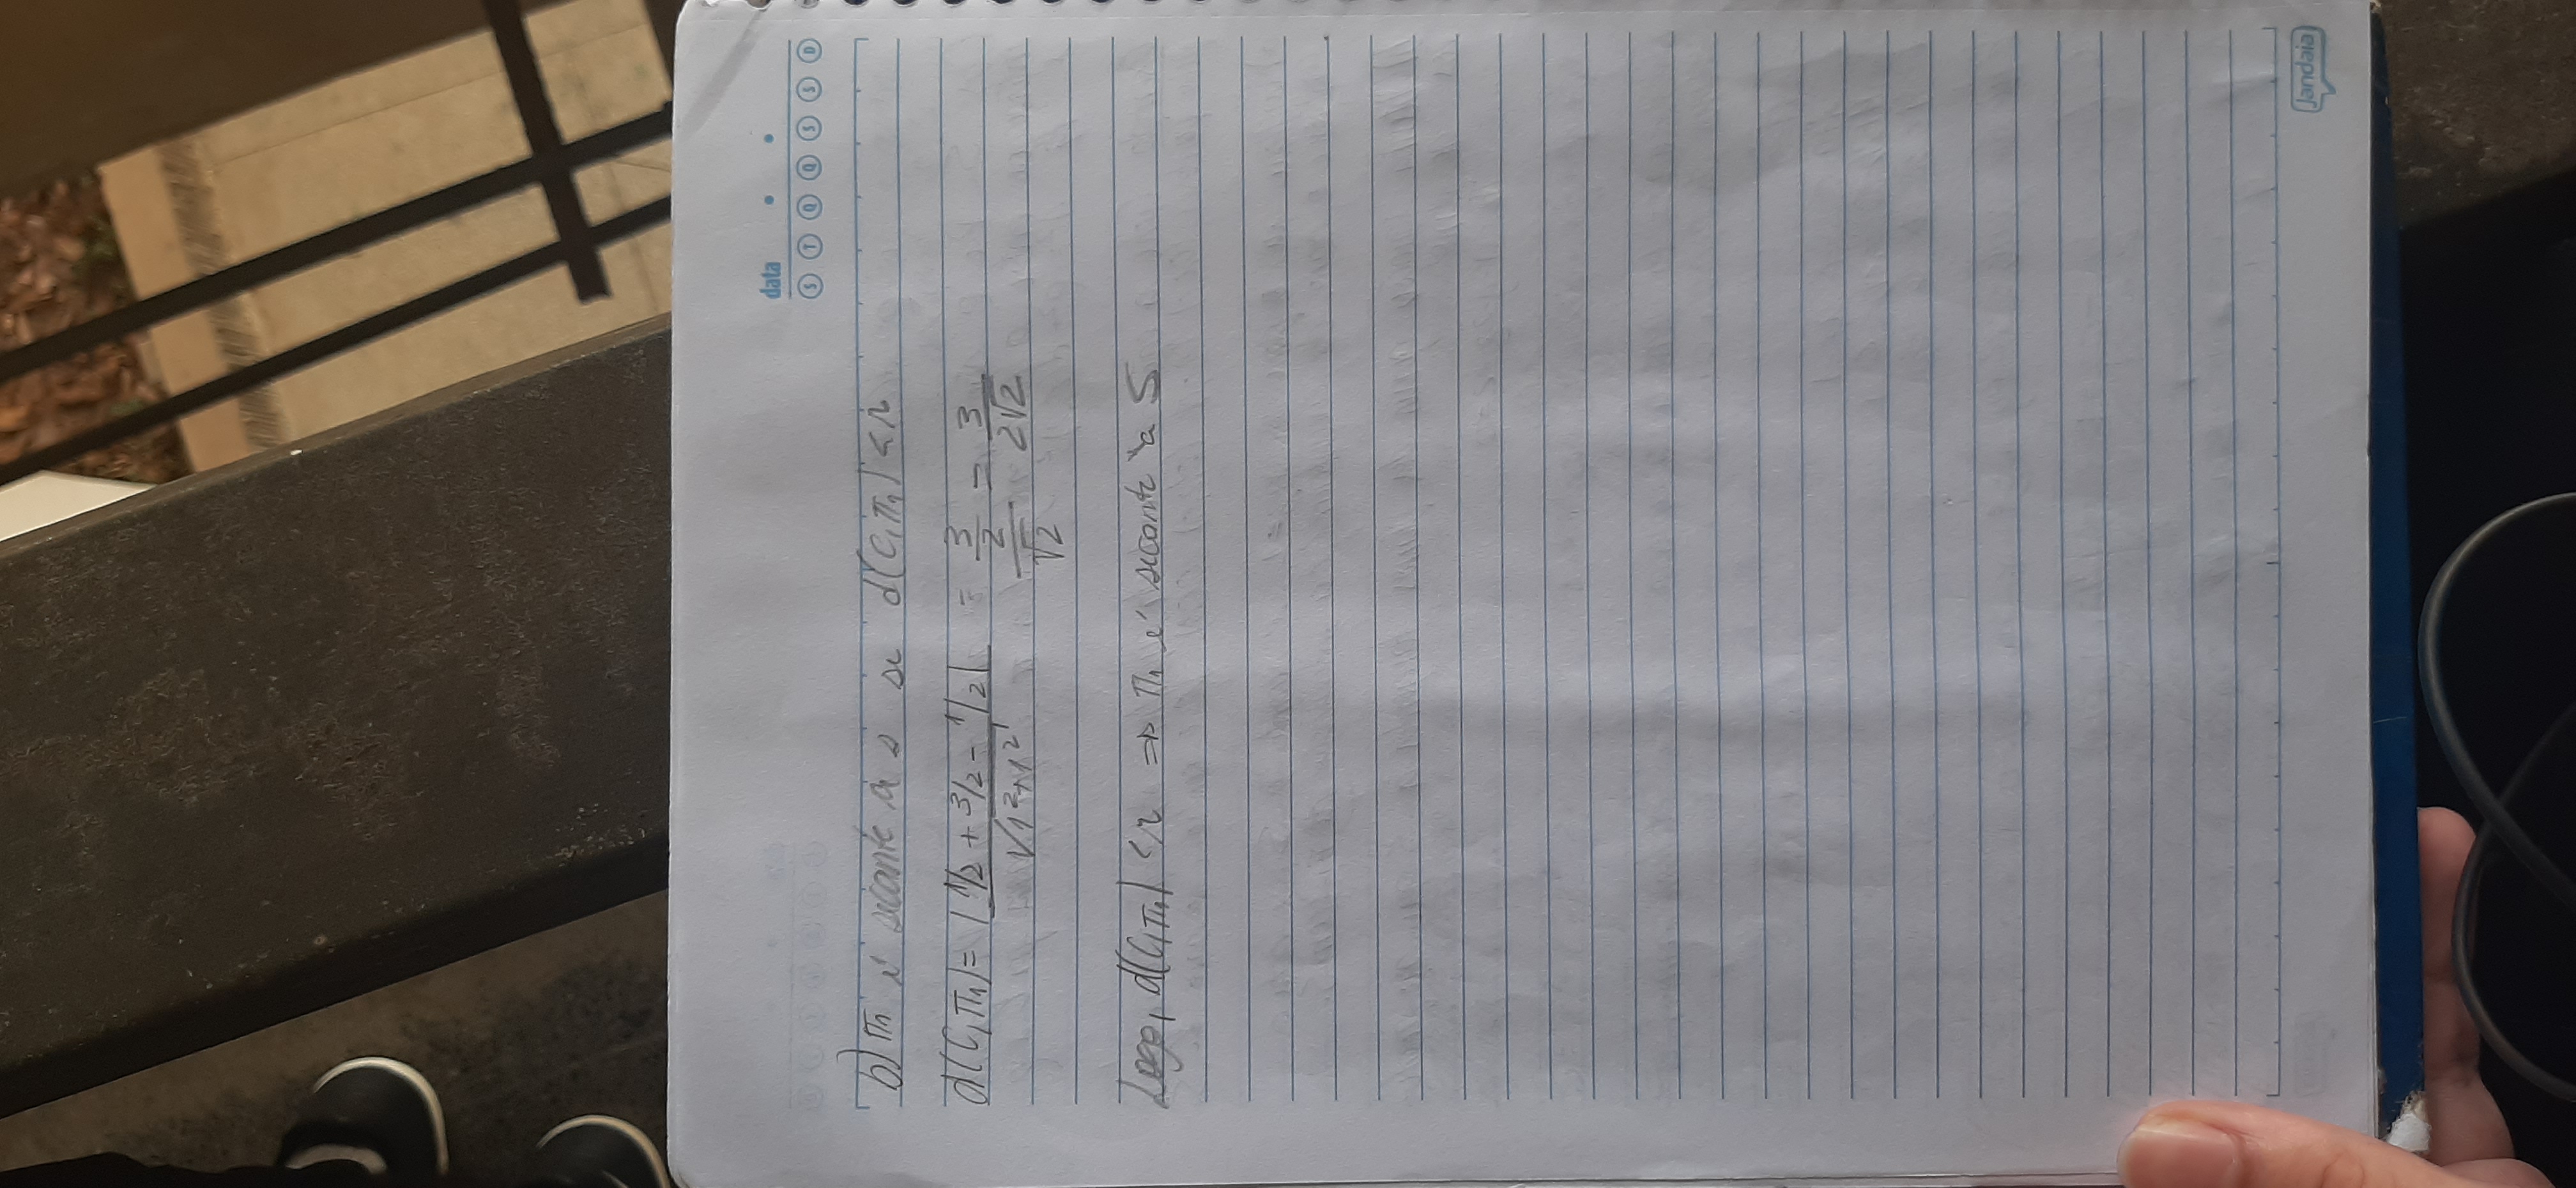 data
S T Q Q S S D
b) π₁ é secante à s se d(C,π₁) < r
d(C,π₁) = |1/2 + 3/2 - 1/2| / √1²+1² = 3/2 / √2 = 3 / 2√2
Logo, d(C,π₁) < r ⇒ π₁ é secante à S
Jandaia